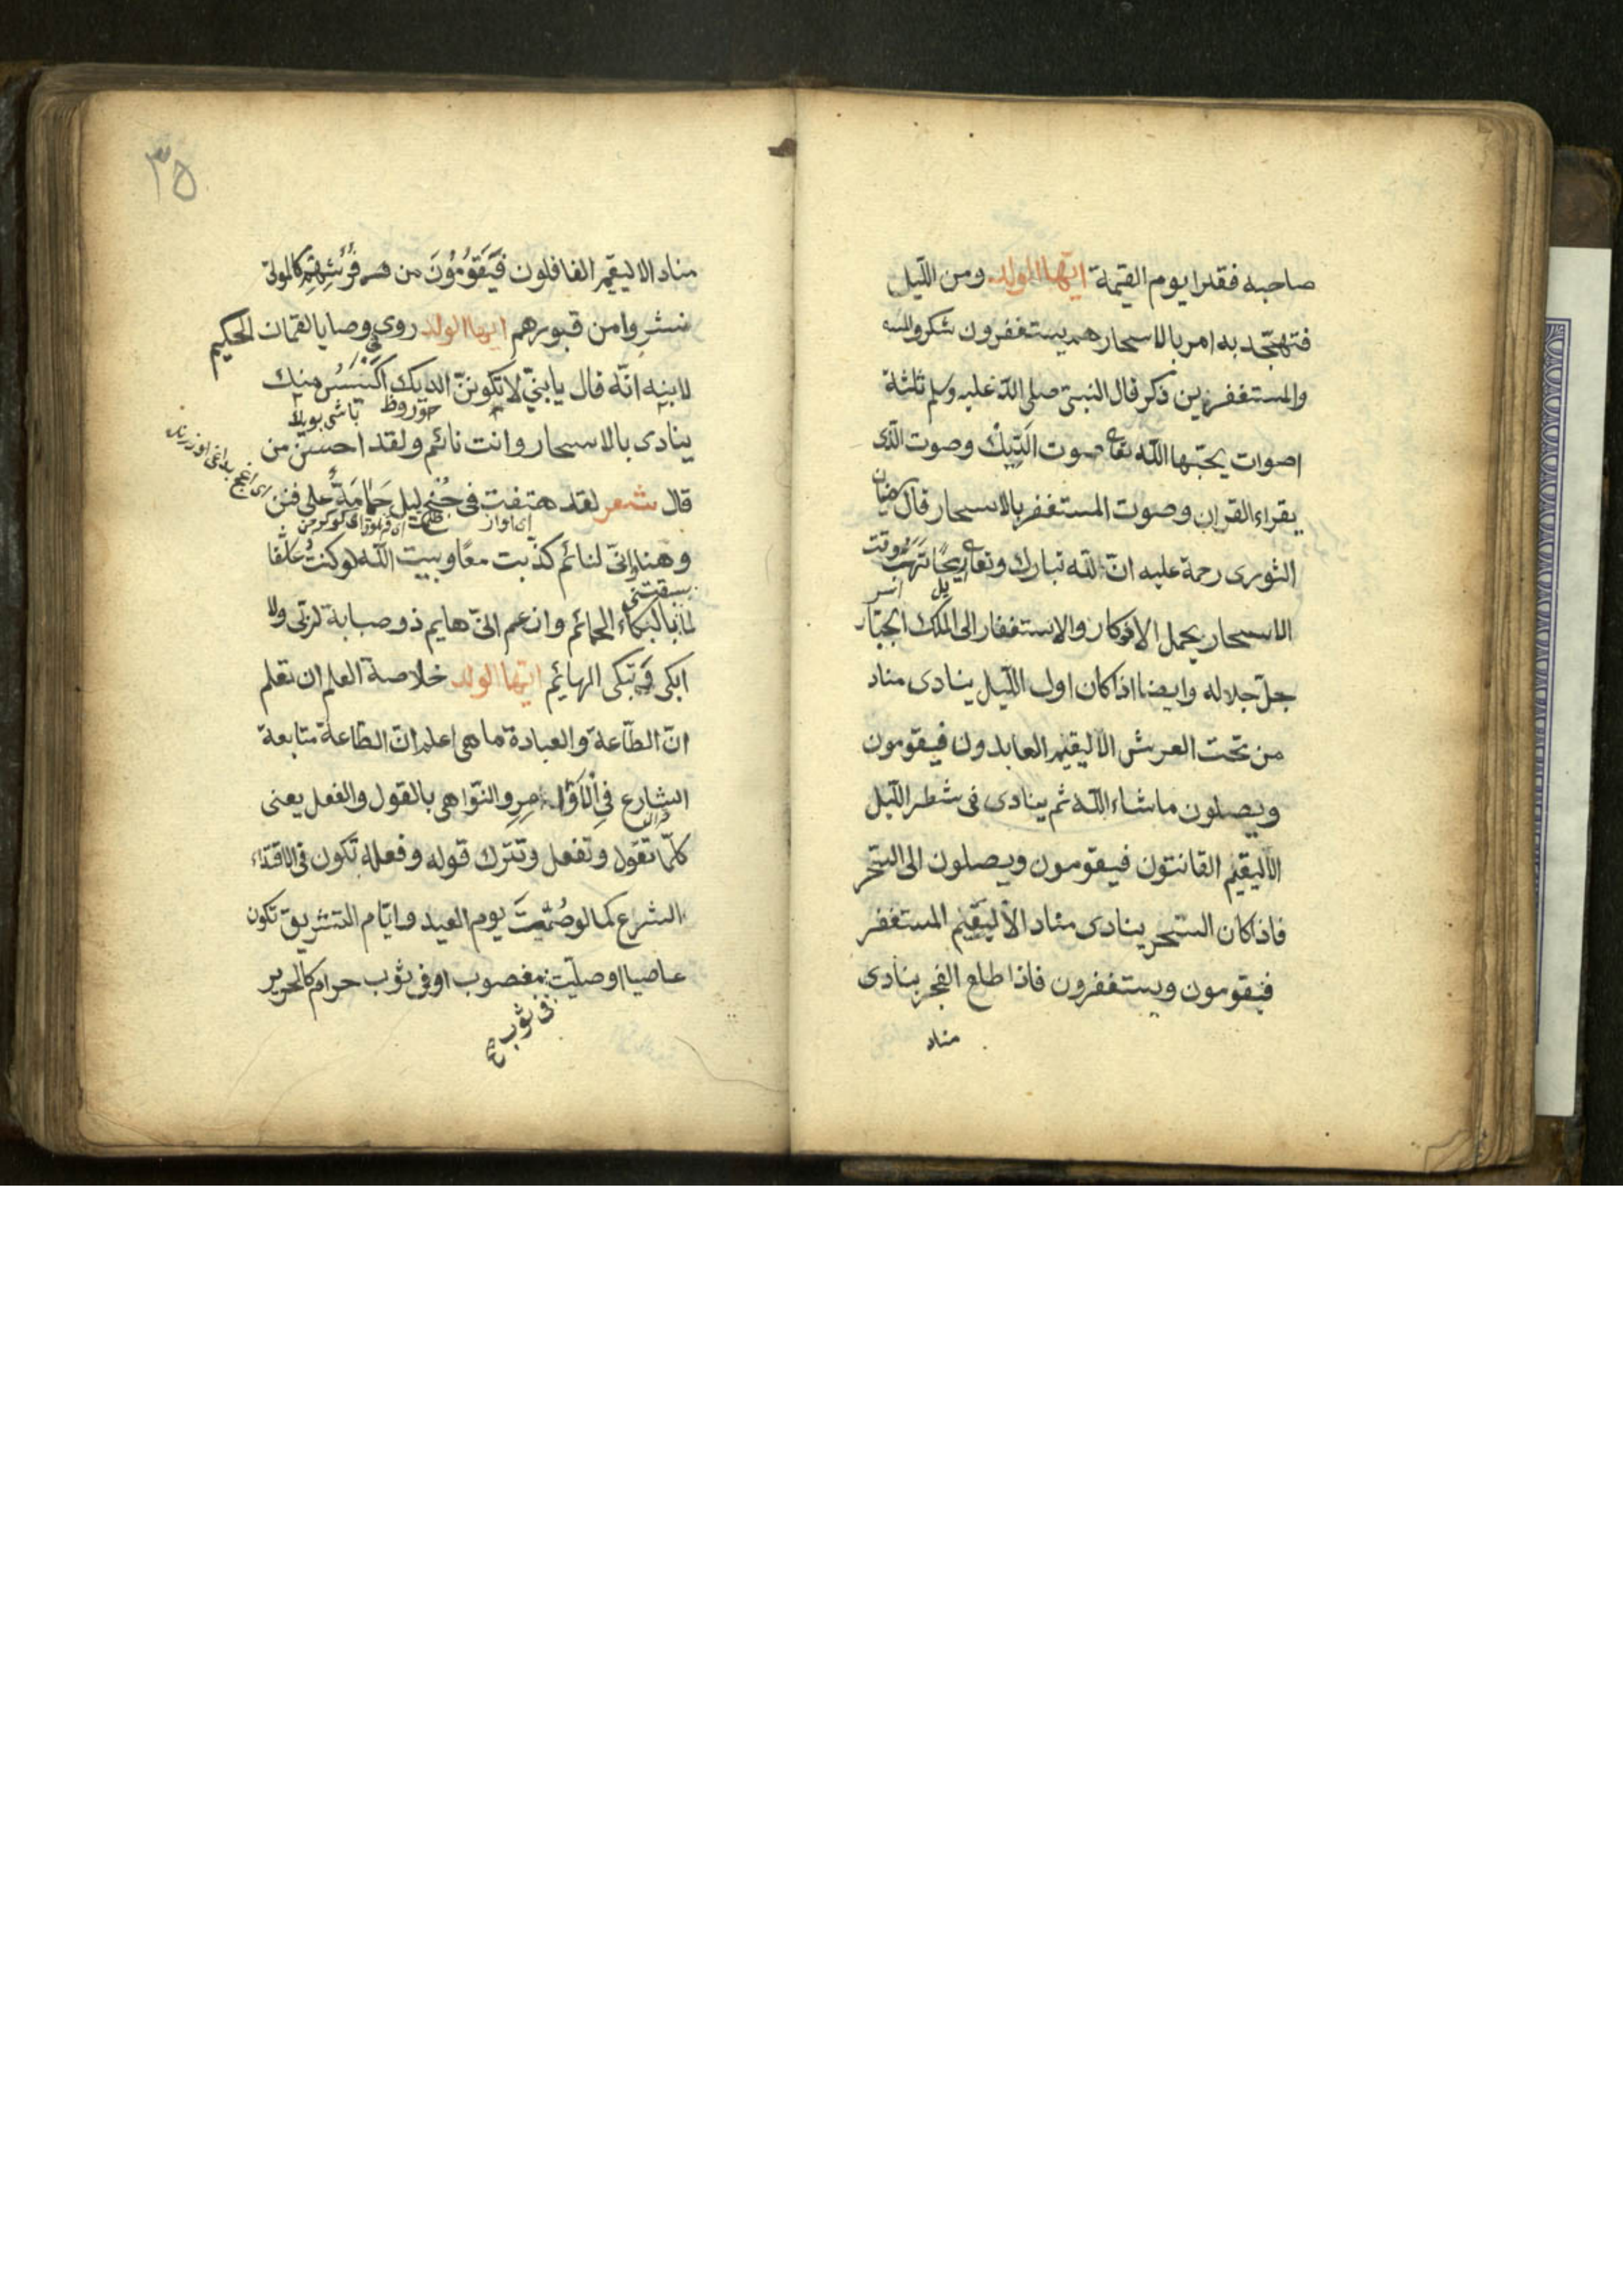 صاحبه فقدا يوم القيمة ايّها الولد ومن اللّيل
فتهجّد به امر بالاسحار هم يستغفرون شكر و
والمستغفرين ذكر قال النبىّ صلى اللّه عليه وسلم ثلثة
اصوات يحبّها اللّه تعا صوت الدّيك وصوت الّذى
يقراء القران وصوت المستغفر بالاسحار قال سفيان
الثورى رحمة عليه انّ للّه تبارك وتعا ريحًا تهتّ وقت
يل اسر
الاسحار يحمل الاذكار والاستغفار الى الملك الجبّار
جلّ جلاله وايضا اذا كان اول اللّيل ينادى مناد
من تحت العرش الا ليقيم العابدون فيقومون
ويصلون ماشاء اللّه ثم ينادى فى شطر اللّيل
الا ليقيم القانتون فيقومون ويصلون الى السّحر
فاذا كان السّحر ينادى مناد الا ليقيم المستغفر
فيقومون ويستغفرون فاذا طلع الفجر ينادى
مناد
٣٥
مناد الا ليقيم الغافلون فَيَقُومُوُنَ من فُرُشِهِمِ كالموتى
نشروا من قبورهم ايها الولد روى فى وصايا لقمان الحكيم
لابنه انّه قال يا بنىّ لا تكوننّ الديك اكْيَسُ منك
ينادى بالاسحار وانت نائم ولقد احسن من
قال شعر لقد هتفت فى جُنْحِ ليل حَمَامَةٌ على فنن
وهنا وانّى لنائم كذبت معًا وبيت اللّه لو كنتُ عاشقا
لما سبقتنى بالبكاء الحمائم وازعم انّى هايم ذو صبابة لربّى ولا
ابكى وَتبكى البهائم ايّها الولد خلاصة العلم ان تعلم
انّ الطّاعة والعبادة ما هى اعلم انّ الطّاعة متابعة
الشارع فِى اْلاَوَامِرِ والنّواهى بالقول والفعل يعنى
كلّما تقول وتفعل وتترك قوله وفعله تكون فى الاقتداء
الشرع كما لو صُمْتَ يوم العيد وايّام التشريق تكون
عاصيا او صليّت مغصوب او فى ثوب حرام كالحرير
فى ثوب